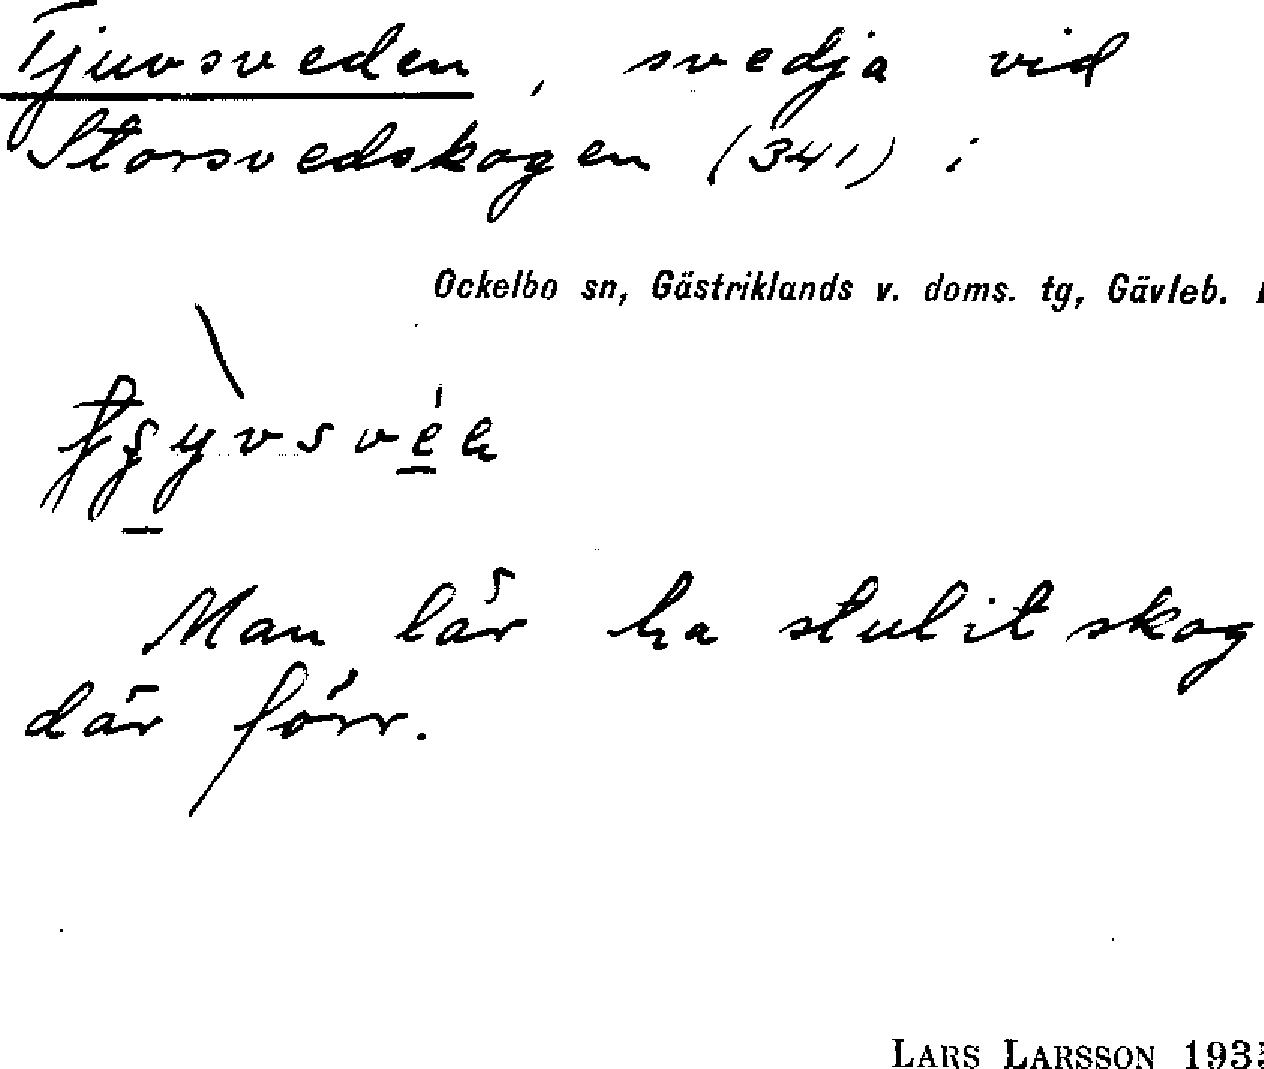 Tjuvsveden, svedja vid
Storsvedskogen (341) i
Ockelbo sn, Gästriklands v. doms. tg, Gävleb.
Man lär ha stulit skog
där förr.
LARS LARSSON 193